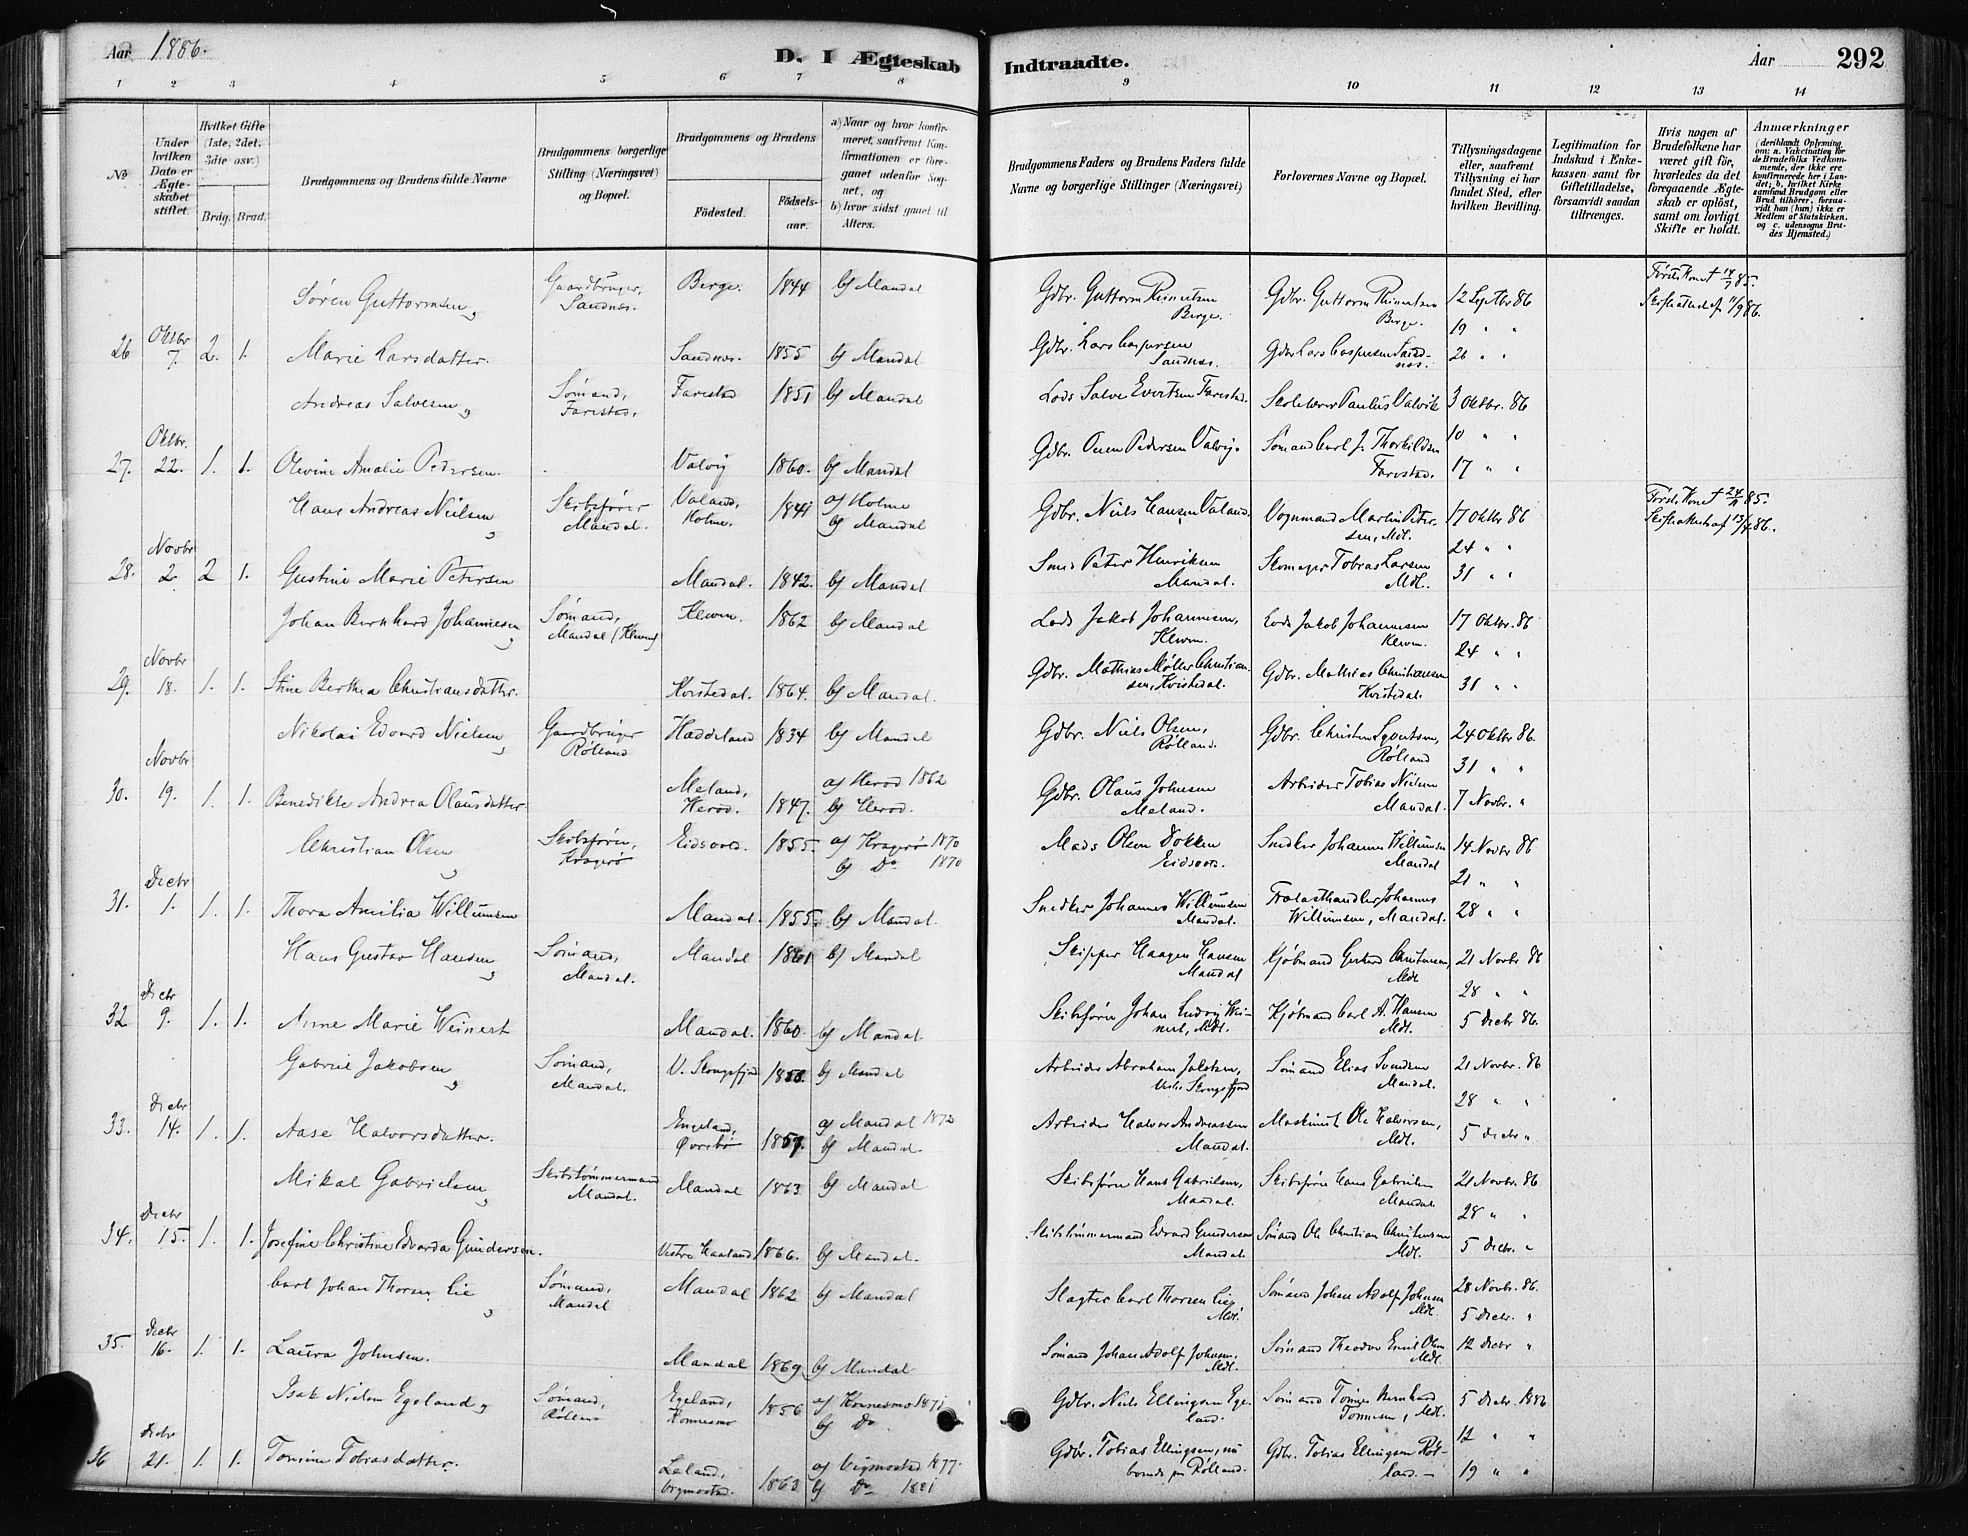 Aar 1886.
D. I Ægteskab Indtraadte.
Aar
292
1 2 3 4 5 6 7 8 9 10 11 12 13 14
No
Under hvilken Dato er Ægteskabet stiftet.
Hvilket Gifte (1ste, 2det, 3die osv.)
Brdg. Brud.
Brudgommens og Brudens fulde Navne
Brudgommens borgerlige Stilling (Næringsvei) og Bopæl.
Brudgommens og Brudens
Födested.
Födselsaar.
a) Naar og hvor konfirmeret, saafremt Konfirmationen er foregaaet udenfor Sognet, og
b) hvor sidst gaaet til Alters.
Brudgommens Faders og Brudens Faders fulde Navne og borgerlige Stillinger (Næringsvei)
Forlovernes Navne og Bopæl.
Tillysningsdagene eller, saafremt Tillysning ei har fundet Sted, efter hvilken Bevilling.
Legitimation for Indskud i Enkekassen samt for Giftetilladelse, forsaavidt saadan tiltrænges.
Hvis nogen af Brudefolkene har været gift för, hvorledes da det foregaaende Ægteskab er oplöst, samt om lovligt Skifte er holdt.
Anmærkninger (deriblandt Oplysning om: a. Vakcination for de Brudefolks Vedkommende, der ikke ere konfirmerede her i Landet; b. hvilket Kirkesamfund Brudgom eller Brud tilhörer, forsaavidt han (hun) ikke er Medlem af Statskirken, og c. udensogns Brudes Hjemsted.)
Søren Guttormsen, Gaardbruger, Sandnæs. Berge. 1844 b) Mandal Gdbr. Guttorm Reinertsen Berge. Gdbr. Guttorm Reinertsen Berge. 12 Septbr 86 Første Kone † 14/7 85. Skifteattest af 11/9 86.
19 " "
26 Oktbr 7. 2. 1. Marie Larsdatter. Sandnæs. 1855 b) Mandal Gdbr. Lars Caspersen Sandnæs. Gdbr Lars Caspersen Sandnæs. 26 " "
Andreas Salvesen, Sømand, Farestad. Farestad 1851 b) Mandal Lods Salve Evertsen Farestad. Skolelærer Paulus Valvik 3 Oktbr. 86
10 " "
27. Oktbr. 22. 1. 1. Olevine Amalie Pedersen. Valvig 1860. b) Mandal Gdbr. Ouen Pedersen Valvig. Sømand Carl J. Thorkildsen Farestad. 17 " "
Hans Andreas Nielsen, Skibsfører Mandal. Valand, Holme. 1841 a) Holme b) Mandal Gdbr. Niels Hansen Valand. Vognmand Martin Petersen, Mdl. 17 Oktbr 86 Første Kone † 24/11 85. Skifteattest af 13/4 86.
24 " "
28. Novbr 2. 2 1. Gustine Marie Petersen Mandal. 1842. b) Mandal Smed Peter Henriksen Mandal. Skomager Tobias Larsen Mdl. 31 " "
Johan Bernhard Johannesen, Sømand, Mandal (Kleven) Kleven. 1862 b) Mandal Lods Jakob Johannesen, Kleven. Lods Jakob Johannesen Kleven. 17 Oktbr. 86
24 " "
29. Novbr 18. 1. 1. Stine Berthea Christiansdatter. Kvistedal. 1864. b) Mandal. Gdbr. Mathias Møller Christiansen, Kvistedal. Gdbr. Mathias Christiansen Kvistedal. 31 " "
Nikolai Edvard Nielsen, Gaardbruger Rølland Hæddeland 1834 b) Mandal Gdbr. Niels Olsen, Rølland. Gdbr. Christen Syvertsen, Rølland 24 Oktbr 86.
31 " "
30. Novbr 19. 1. 1. Benedikte Andrea Olausdatter. Meland, Herød. 1847. a) Herød 1862 b) Herød. Gdbr. Olaus Johnsen Meland. Arbeider Tobias Nielsen Mandal. 7 Novbr. "
Christian Olsen, Skibsfører, Kragerø Eidsvold. 1855. a) Kragerø 1870 b) Do 1870 Mads Olsen Dokken Eidsvold. Snedker Johannes Willumsen Mandal 14 Novbr 86
21 " "
31. Decbr 1. 1. 1. Thora Amilia Willumsen Mandal. 1855. b) Mandal. Snedker Johannes Willumsen Mandal. Trælasthandler Johannes Willumsen, Mandal. 28 " "
Hans Gustav Hansen, Sømand, Mandal. Mandal 1861 b) Mandal Skipper Haagen Hansen Mandal Kjøbmand Gerhard Christensen, Mdl 21 Novbr 86
28 " "
32 Decbr 9. 1. 1. Anne Marie Weinert Mandal. 1860. b) Mandal Skibsfører Johan Ludvig Weinert, Mdl. Kjøbmand Carl A. Hansen Mdl. 5 Decbr 86.
Gabriel Jakobsen, Sømand, Mandal. V. Skogsfjord 1858. b) Mandal Arbeider Abraham Jakobsen, Vestre Skogsfjord Sømand Elias Svendsen Mandal. 21 Novbr. 86
28 " "
33. Decbr 14. 1. 1. Aase Halvorsdatter. Engeland, Øvrebø 1857. a) Mandal 1873 b) Mandal. Arbeider Halvor Andreassen Mandal. Maskinist Ole Halvorsen, Mdl. 5 Decbr "
Mikal Gabrielsen, Skibstømmermand Mandal. Mandal 1863 b) Mandal Skibsfører Hans Gabrielsen, Mandal. Skibsfører Hans Gabrielsen Mandal. 21 Novbr. 86
28 " "
34. Decbr 15. 1. 1. Josefine Christine Edvarda Gundersen. Vestre Haaland 1866. b) Mandal. Skibstømmermand Edvard Gundersen Mandal. Sømand Ole Christian Christensen Mdl. 5 Decbr. "
Carl Johan Thorsen Lie, Sømand, Mandal Mandal 1862 b) Mandal Slagter Carl Thorsen Lie, Mdl. Sømand Johan Adolf Johnsen Mdl. 28 Novbr. 86.
5 Decbr. "
35. Decbr 16. 1. 1. Laura Johnsen. Mandal 1869 b) Mandal Sømand Johan Adolf Johnsen, Mdl. Sømand Theodor Emil Olsen Mdl. 12 Decbr "
Isak Nielsen Egeland, Sømand, Rølland Egeland, Konnesmo 1856 a) Konnesmo 1871 b) Do Gdbr. Niels Ellingsen Egeland. Sømand Tønnes Bernhard Tønnesen, Mdl. 5 Decbr. 1886
12 " "
36 Decbr 21. 1. 1. Tomine Tobiasdatter. Leland, Vigmostad. 1863 a) Vigmostad 1877. b) Do 1881 Gdbr. Tobias Ellingsen, nu boende paa Rølland. Gdbr. Tobias Ellingsen Rølland. 19 " "